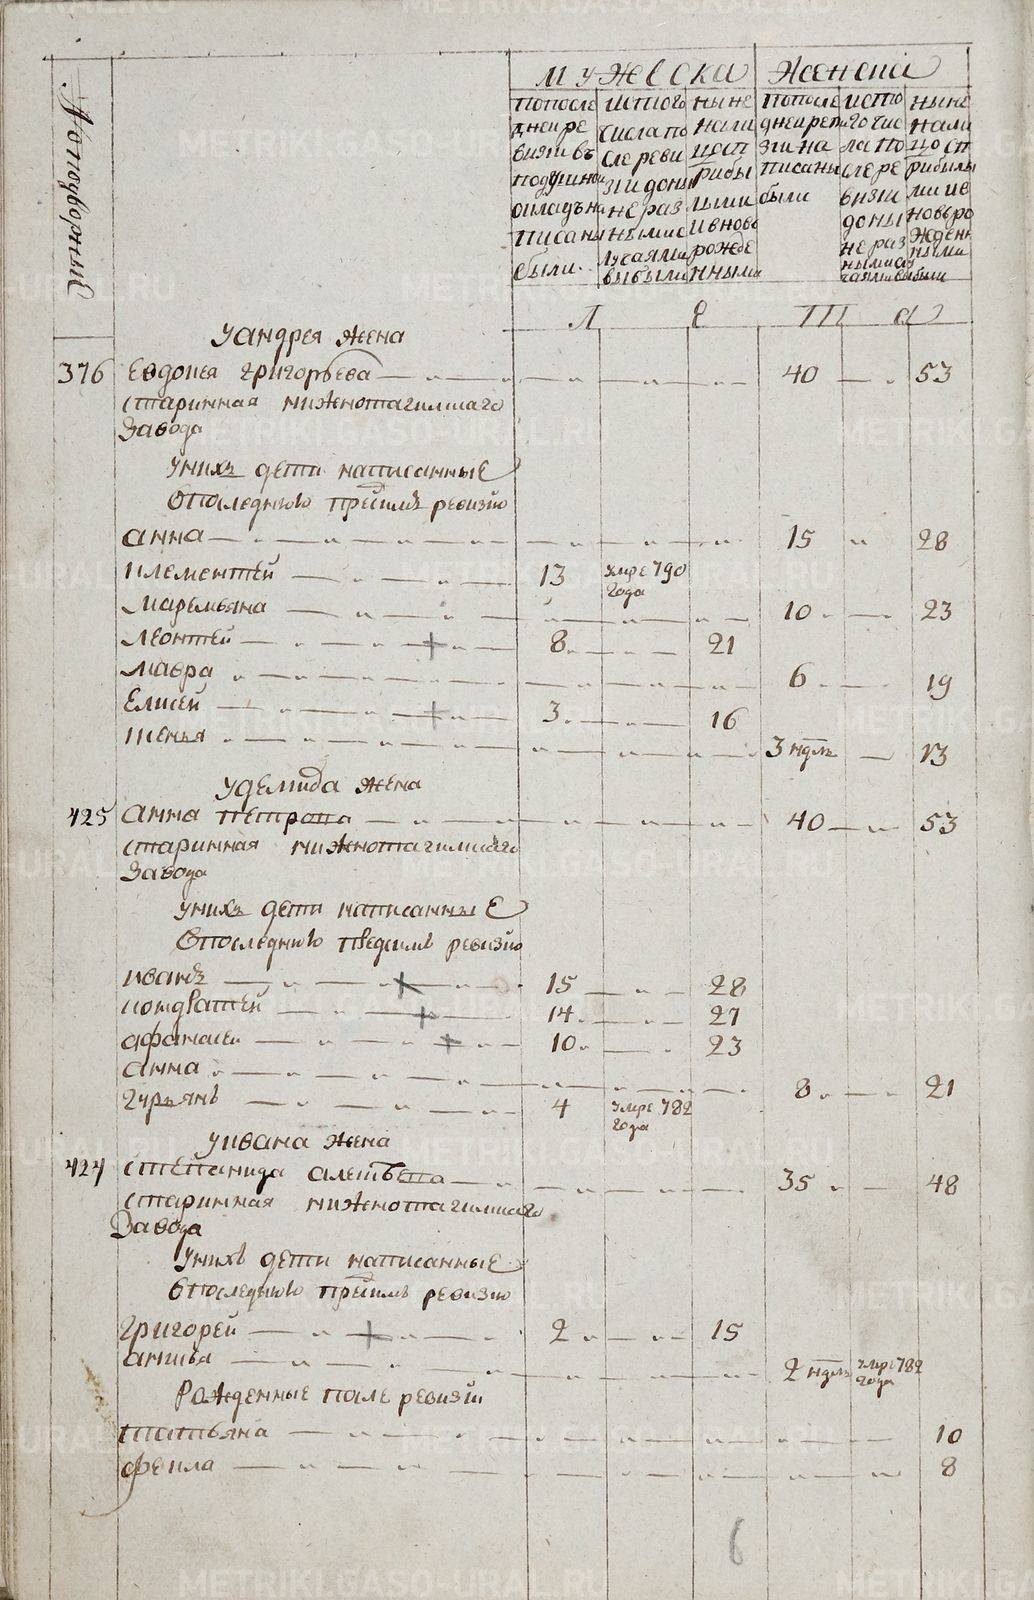 Подворный
Мужеска Женска
по последней ревизии въ подушной окладъ написаны были
ис того числа после ревизии до ныне разными случаями выбыли
ныне на лицо с прибылыми и вновь рожденными
по последней ревизии написаны были
ис того числа после ревизии до ныне разными случаями выбыли
ныне на лицо с прибылыми и вновь рожденными
Л е т а
У андрея жена
376 Евдокея григорьева 40 53
старинная нижнотагилскаго
завода
У нихъ дети написанные
в последнюю пред симъ ревизию
анна 15 28
клементей 13 умре 790 года
маремьяна 10 23
леонтей + 8 21
мавра 6 19
Елисей + 3 16
ксенья 3 ндль 13
У демида жена
425 анна петрова 40 53
старинная нижнотагилскаго
завода
У нихъ дети написанные
в последнюю пред симъ ревизию
иванъ + 15 28
кондратей + 14 27
афанасей + 10 23
анна 8 21
гурьянъ 4 умре 782 года
У ивана жена
424 степанида 35 48
старинная нижнотагилскаго
завода
У нихъ дети написанные
в последнюю пред симъ ревизию
григорей + 2 15
анисья 2 ндль умре 782 года
Рожденные после ревизии
татьяна 10
фекла 8
6
METRIKI.GASO-URAL.RU